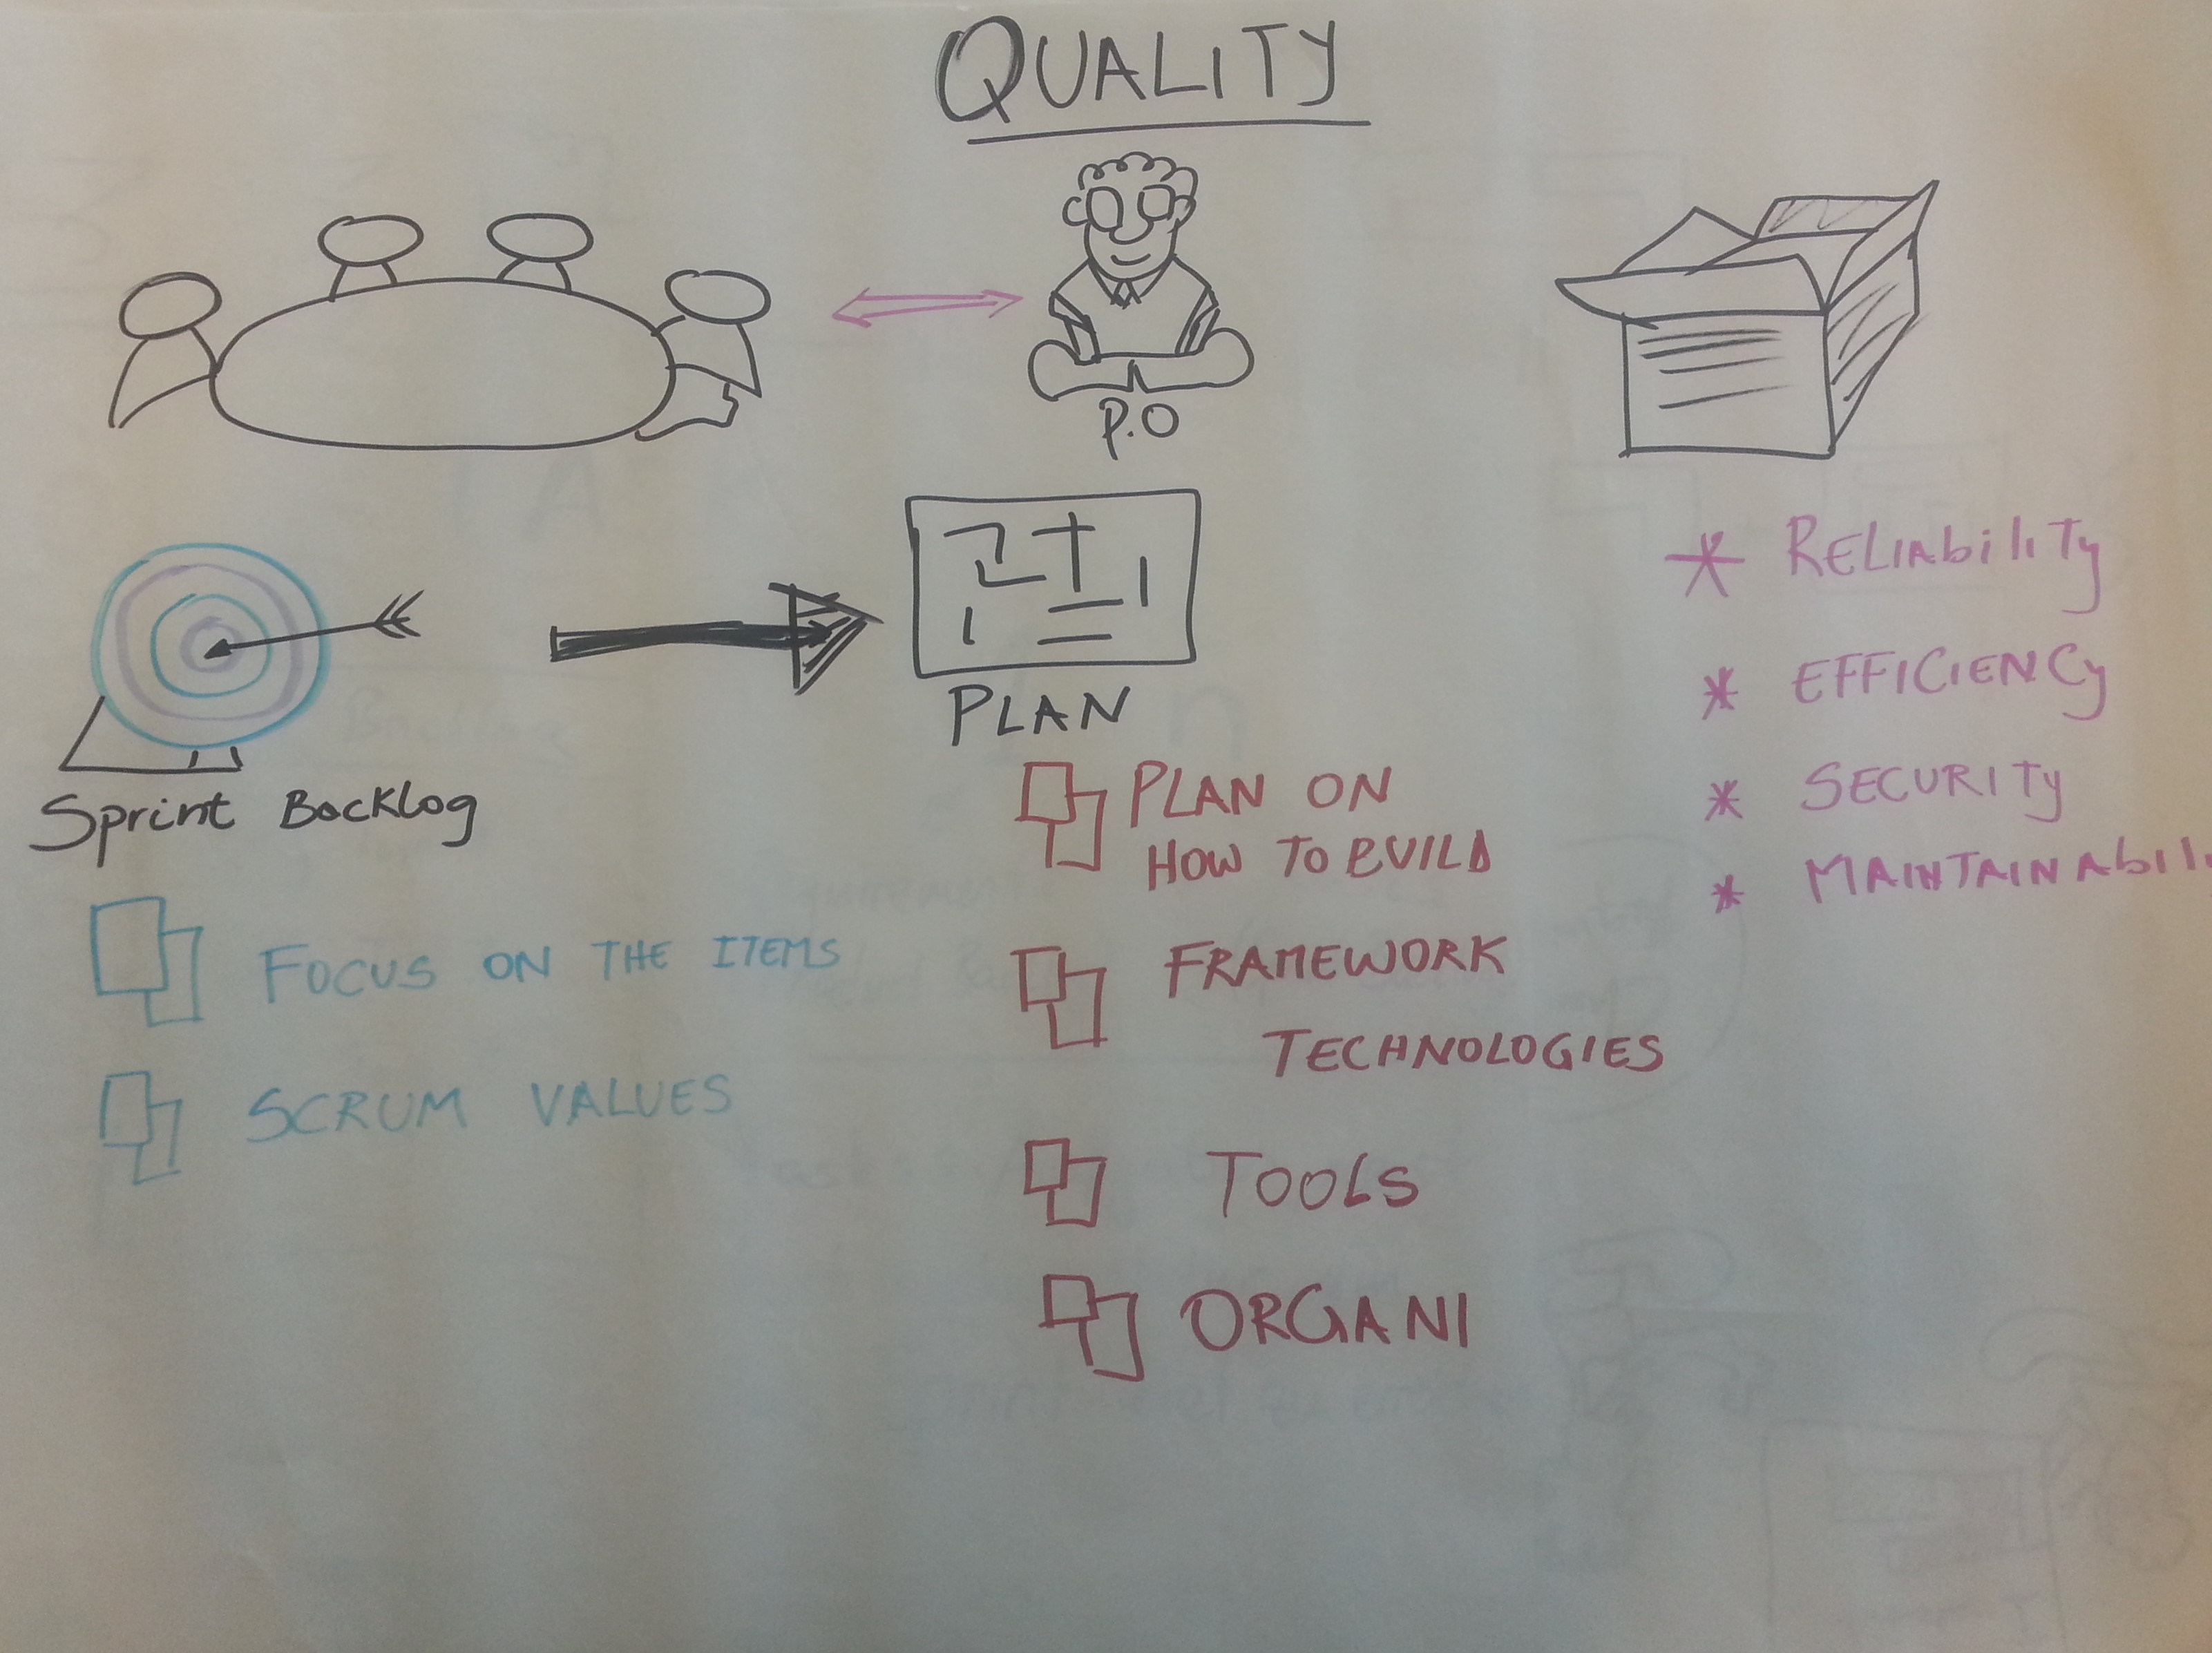 QUALITY
P.O
PLAN
Sprint Backlog
FOCUS ON THE ITEMS
SCRUM VALUES
PLAN ON
HOW TO BUILD
FRAMEWORK
TECHNOLOGIES
TOOLS
ORGANI
* RELIAbiliTy
* EFFICIENCy
* SECURITy
* MAINTAINAbili